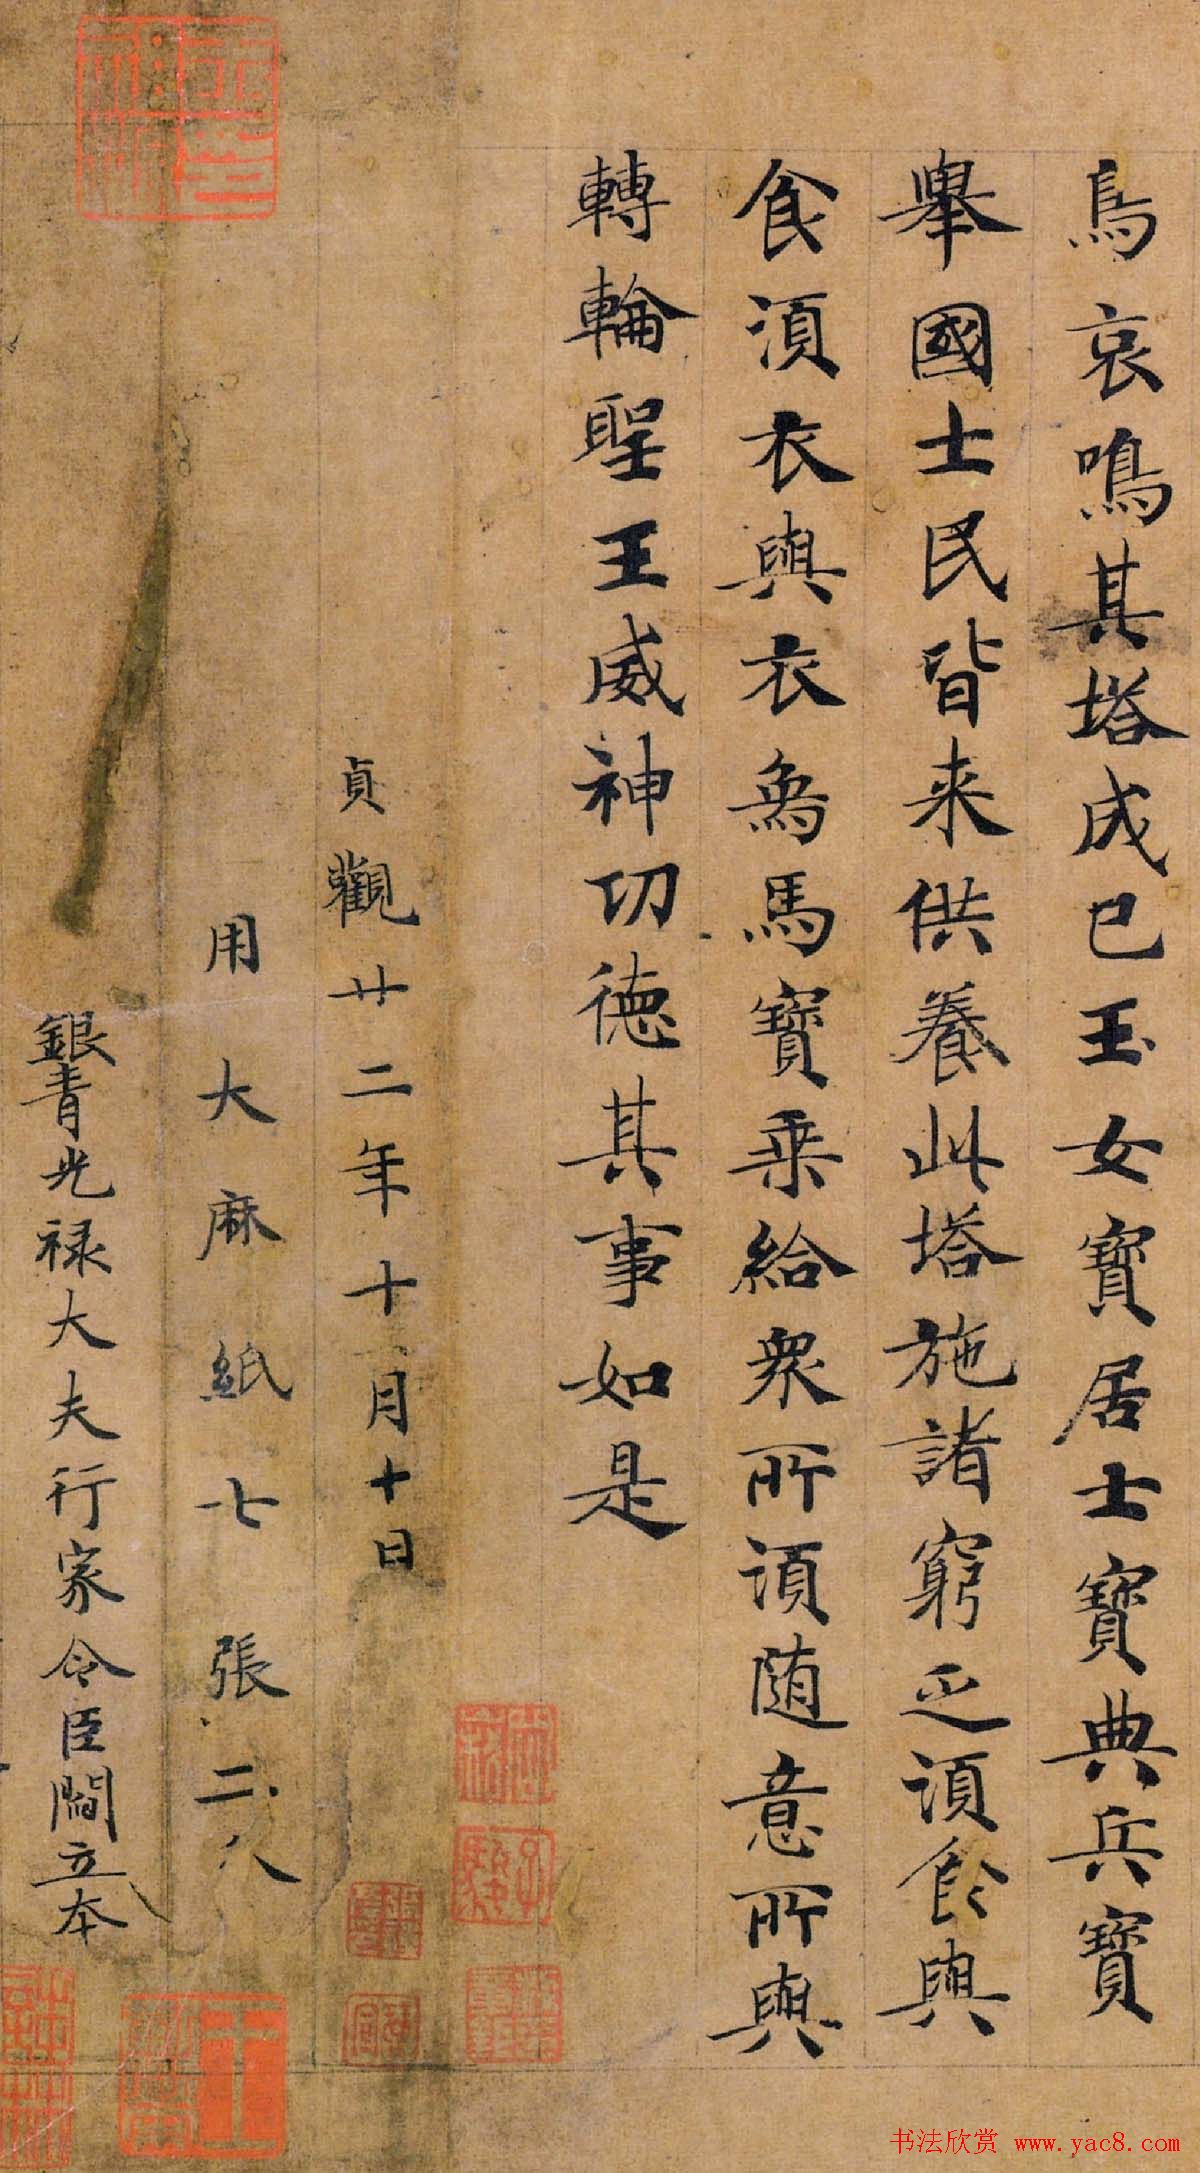 鳥哀鳴其塔成已玉女寶居士寶典兵寶
舉國士民皆来供養此塔施諸窮乏湏食與
食湏衣與衣象馬寶乗給衆所湏随意所與
轉輪聖王威神功德其事如是
貞觀廿二年十二月十日
用大麻紙七張二分
銀青光禄大夫行家令臣閻立本
书法欣赏 www.yac8.com